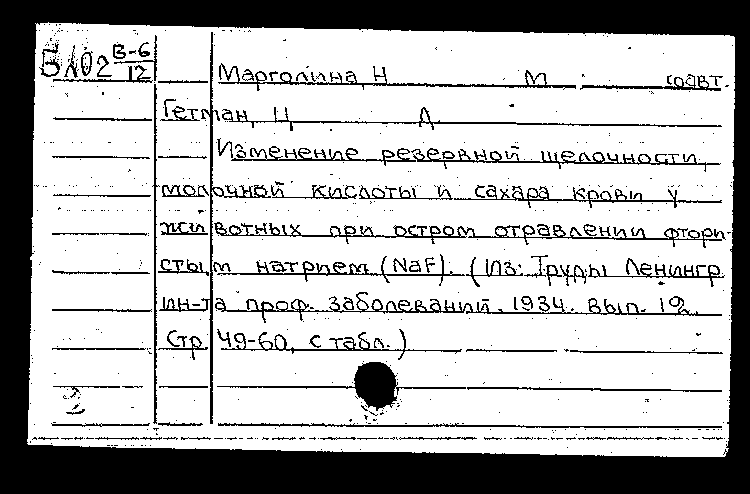 Б102 В-6/12
Марголина, Н М ; соавт.
Гетман, Ц А
Изменение резервной щелочности,
молочной кислоты и сахара крови у
животных при остром отравлении фтори-
стым натрием (NaF). (Из: Труды Ленингр
ин-та проф. заболеваний. 1934. вып. 12.
Стр. 49-60, с табл.)
2